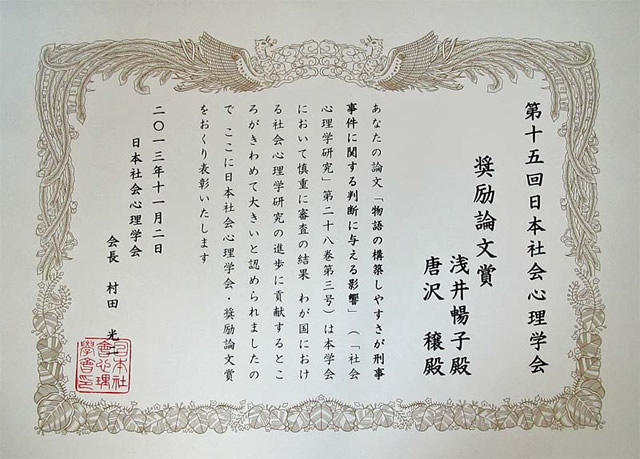 第十五回日本社会心理学会
奨励論文賞
浅井暢子殿
唐沢　穣殿
あなたの論文「物語の構築しやすさが刑事
事件に関する判断に与える影響」（「社会
心理学研究」第二十八巻第三号）は本学会
において慎重に審査の結果　わが国におけ
る社会心理学研究の進歩に貢献するとこ
ろがきわめて大きいと認められましたの
で　ここに日本社会心理学会・奨励論文賞
をおくり表彰いたします
二〇一三年十一月二日
日本社会心理学会
会長　村田　光二
日本社
會心理
學會印